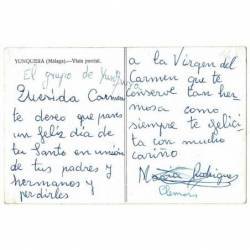 YUNQUERA (Málaga).—Vista parcial.
El grupo de
Querida Carmen
te deseo que pases
un feliz día de
tu Santo en unión
de tus padres y
hermanos y
pedirles
a la Virgen del
Carmen que te
conserve tan her-
mosa como
siempre te felici
ta con mucho
cariño
María Rodriguez